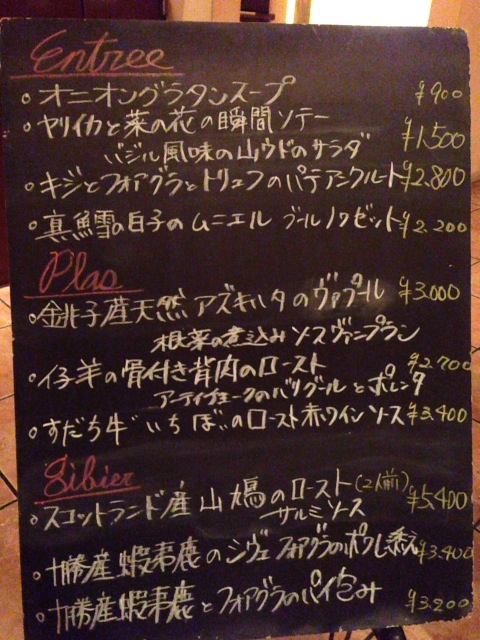 Entree
。オニオングラタンスープ ¥900
。ヤリイカと菜の花の瞬間ソテー
バジル風味の山ウドのサラダ ¥1,500
。キジとフォアグラとトリュフのパテアンクルート ¥2.800
。真鱈の白子のムニエル ブールノワゼット ¥2.200
Plas
。銚子産天然アズキハタのヴァプール ¥3.000
根菜の煮込み ソースヴァンブラン
。仔羊の骨付き背肉のロースト ¥2.700
アーティチョークのバリグールとポレンタ
。すだち牛"いちぼ"のロースト赤ワインソース ¥3.400
Gibier
。スコットランド産山鳩のロースト(2人前) ¥5.400
サルミソース
。十勝産蝦夷鹿のシヴェ フォアグラのポワレ添え ¥3.400
。十勝産蝦夷鹿とフォアグラのパイ包み ¥3.200